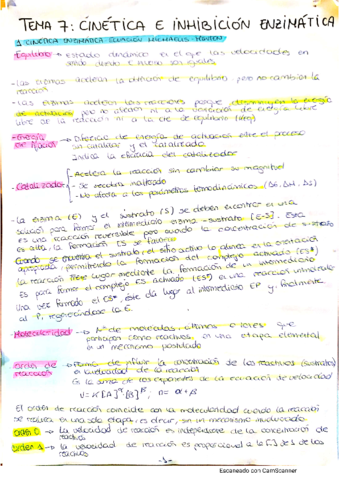 TEMA 7: CINÉTICA E INHIBICIÓN ENZIMÁTICA
1 CINÉTICA ENZIMÁTICA ECUACIÓN MICHAELIS-MENTEN
Equilibrio → estado dinámico en el que las velocidades en
sentido directo e inverso son iguales
- Las enzimas aceleran la obtención de equilibrio pero no cambian la
reacción
- Las enzimas aceleran las reacciones porque disminuyen la energía
de activación pero no afectan ni a la variación de energía libre
libre de la reacción ni a la cte de equilibrio (Keq)
Energía de fijación → Diferencia de energía de activación entre el proceso
sin catalizar y el catalizado
Indica la eficacia del catalizador
Catalizador
- Acelera la reacción sin cambiar su magnitud
- Se recupera inalterado
- No afecta a los parámetros termodinámicos (ΔG, ΔH, ΔS)
- La enzima (E) y el sustrato (S) se deben encontrar en una
solución para formar el intermediario enzima-sustrato [E-S]. Esta
es una reacción reversible pero cuando la concentración de sustrato
es alta, la formación ES se favorece
Cuando se encuentra el sustrato, el sitio activo lo alinea en la orientación
apropiada, permitiendo la formación del complejo activado (ES*)
la reacción tiene lugar mediante la formación de un intermediario
ES para formar el complejo ES activado (ES*) en una reacción unimolecular
Una vez formado el ES*, éste da lugar al intermediario EP y, finalmente,
al P, regenerándose la E.
Molecularidad → Nº de moléculas, átomos o iones que
participan como reactivos, en una etapa elemental
de un mecanismo postulado
Orden de reacción → Forma de influir la concentración de los reactivos (sustratos)
en la velocidad de la reacción
Es la suma de los exponentes de la ecuación de velocidad
V = K [A]^α [B]^β, n = α + β
El orden de reacción coincide con la molecularidad cuando la reacción
se realiza en una sola etapa, es decir, sin un mecanismo involucrado
Orden 0 → La velocidad de reacción es independiente de la concentración de
reactivo
Orden 1 → La velocidad de reacción es proporcional a la [ ] de 1 de los
reactivos
-1-
Escaneado con CamScanner